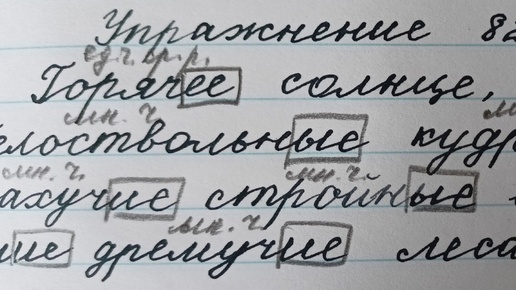 Упражнение 82
ед.ч. ср.р.
Горячее солнце,
мн. ч.
елоствольные кудр
мн. ч. мн. ч.
ахучие стройные
мн. ч.
ие дремучие леса